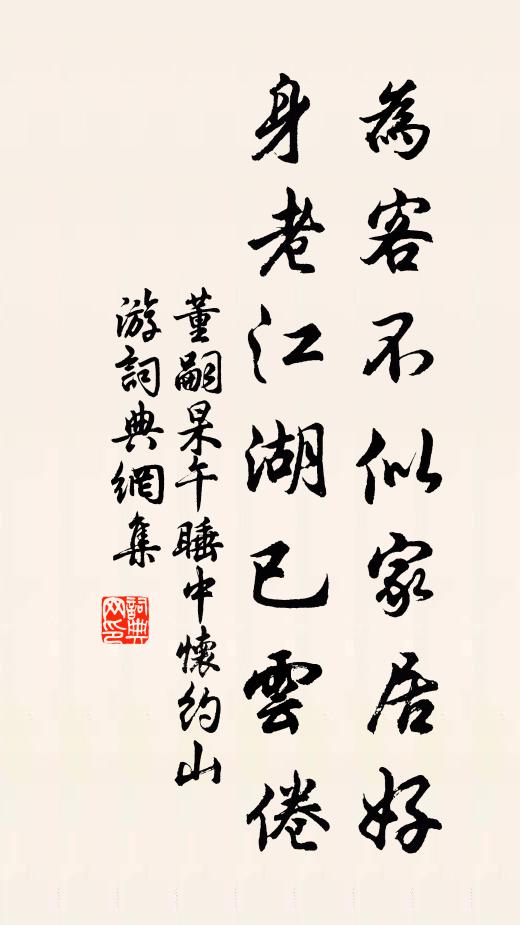 為客不似家居好
身老江湖已雲倦
董嗣杲午睡中懷約山
游詞典網集
詞典网印